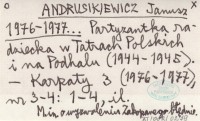 ANDRUSIKIEWICZ Janusz
1976-1977... Partyzantka ra-
dziecka w Tatrach Polskich
i na Podhalu (1944-1945).
– Karpaty 3 (1976-1977),
nr 3-4: 1-4, il.
M.in. o wyzwoleniu Zakopanego błędnie.